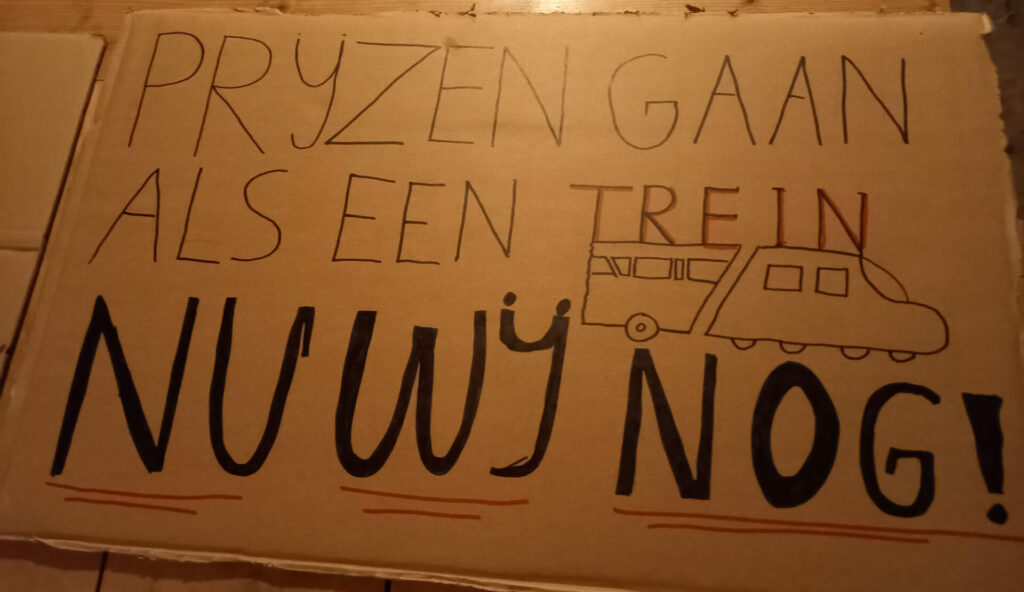 PRIJZEN GAAN
ALS EEN TREIN
NU WIJ NOG!